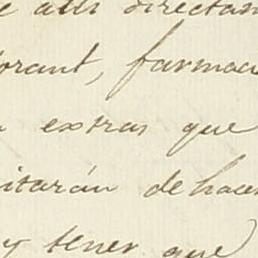 e alli directam
orant, farmac
extras que
itarán de hacer
y tener que